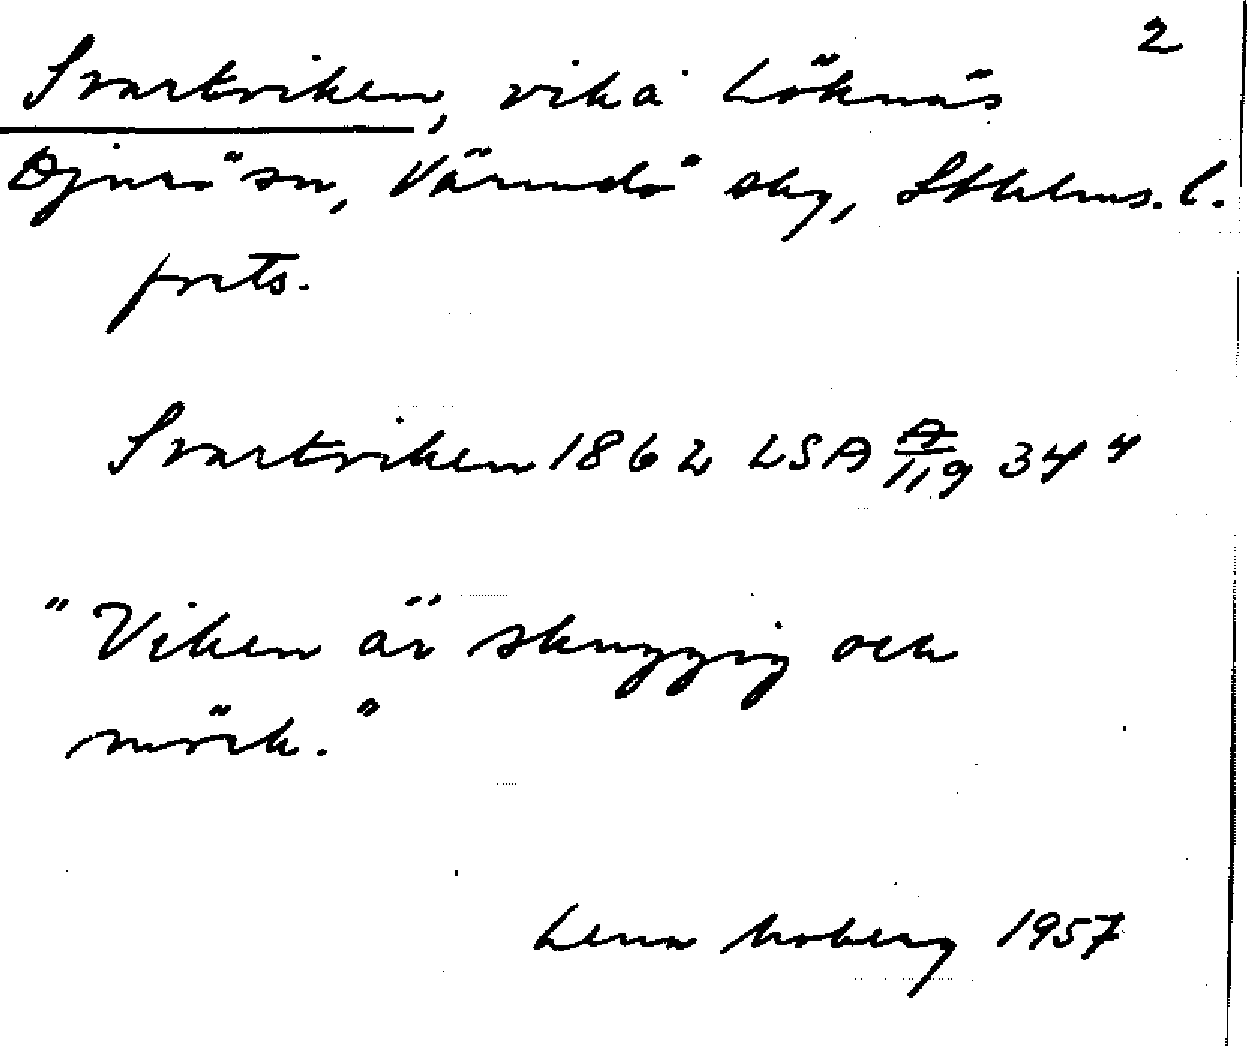 2
Svartviken, vik å Löknäs
Djurö sn, Värmdö skg, Sthlms. l.
forts.
Svartviken 1862 LSA A/119 34 4
"Viken är skuggig och
mörk."
Lena Moberg 1957